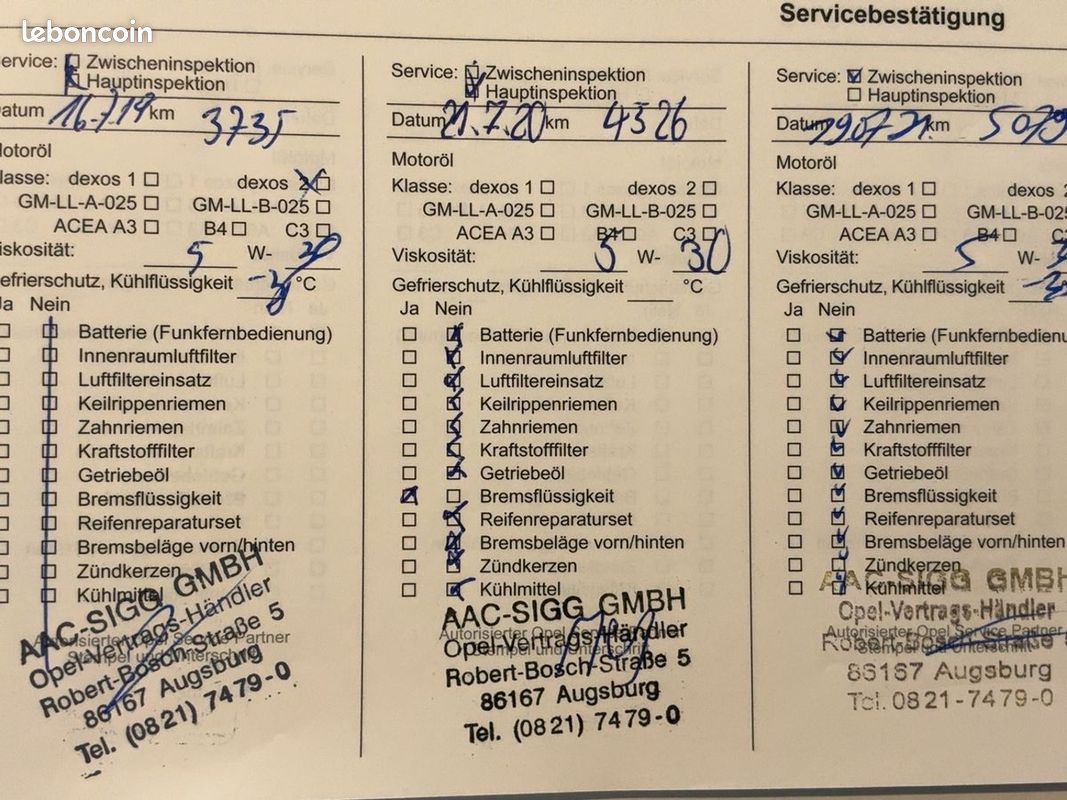 leboncoin
Servicebestätigung
Service: Zwischeninspektion
Hauptinspektion
Datum 16.7.19 km 3735
Motoröl
Klasse: dexos 1 dexos 2
GM-LL-A-025 GM-LL-B-025
ACEA A3 B4 C3
Viskosität: 5 W- 30
Gefrierschutz, Kühlflüssigkeit °C
Ja Nein
Batterie (Funkfernbedienung)
Innenraumluftfilter
Luftfiltereinsatz
Keilrippenriemen
Zahnriemen
Kraftstofffilter
Getriebeöl
Bremsflüssigkeit
Reifenreparaturset
Bremsbeläge vorn/hinten
Zündkerzen
Kühlmittel
Autorisierter Opel Service Partner
Stempel und Unterschrift
AAC-SIGG GMBH
Opel-Vertrags-Händler
Robert-Bosch-Straße 5
86167 Augsburg
Tel. (0821) 7479-0
Service: Zwischeninspektion
Hauptinspektion
Datum 21.7.20 km 4326
Motoröl
Klasse: dexos 1 dexos 2
GM-LL-A-025 GM-LL-B-025
ACEA A3 B4 C3
Viskosität: 5 W- 30
Gefrierschutz, Kühlflüssigkeit °C
Ja Nein
Batterie (Funkfernbedienung)
Innenraumluftfilter
Luftfiltereinsatz
Keilrippenriemen
Zahnriemen
Kraftstofffilter
Getriebeöl
Bremsflüssigkeit
Reifenreparaturset
Bremsbeläge vorn/hinten
Zündkerzen
Kühlmittel
Autorisierter Opel
Stempel und Unterschrift
AAC-SIGG GMBH
Opel-Vertrags-Händler
Robert-Bosch-Straße 5
86167 Augsburg
Tel. (0821) 7479-0
Service: Zwischeninspektion
Hauptinspektion
Datum km 5079
Motoröl
Klasse: dexos 1 dexos 2
GM-LL-A-025 GM-LL-B-025
ACEA A3 B4
Viskosität: 5 W-
Gefrierschutz, Kühlflüssigkeit
Ja Nein
Batterie (Funkfernbedienu
Innenraumluftfilter
Luftfiltereinsatz
Keilrippenriemen
Zahnriemen
Kraftstofffilter
Getriebeöl
Bremsflüssigkeit
Reifenreparaturset
Bremsbeläge vorn/hinten
Zündkerzen
Kühlmittel
AAC-SIGG GMBH
Opel-Vertrags-Händler
Autorisierter Opel Service Partner
Robert-Bosch-Straße 5
Stempel und Unterschrift
86167 Augsburg
Tel. 0821-7479-0